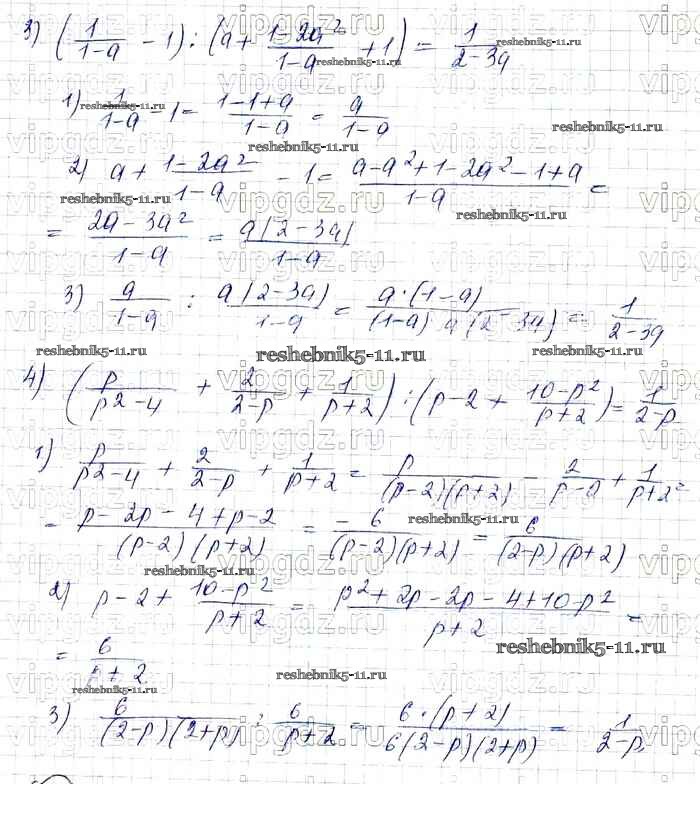 3) (1/(1-a) - 1) : (a + (1-2a²)/(1-a) + 1) = 1/(2-3a)
1) 1/(1-a) - 1 = (1-1+a)/(1-a) = a/(1-a)
2) a + (1-2a²)/(1-a) - 1 = (a-a²+1-2a²-1+a)/(1-a) =
= (2a-3a²)/(1-a) = a(2-3a)/(1-a)
3) a/(1-a) : a(2-3a)/(1-a) = a·(1-a)/((1-a) a(2-3a)) = 1/(2-3a)
4) (p/(p²-4) + 2/(2-p) + 1/(p+2)) : (p-2 + (10-p²)/(p+2)) = 1/(2-p)
1) p/(p²-4) + 2/(2-p) + 1/(p+2) = p/((p-2)(p+2)) - 2/(p-2) + 1/(p+2) =
= (p-2p-4+p-2)/((p-2)(p+2)) = -6/((p-2)(p+2)) = 6/((2-p)(p+2))
2) p-2 + (10-p²)/(p+2) = (p²+2p-2p-4+10-p²)/(p+2) =
= 6/(p+2)
3) 6/((2-p)(2+p)) : 6/(p+2) = 6·(p+2)/(6(2-p)(2+p)) = 1/(2-p)
reshebnik5-11.ru
vipgdz.ru